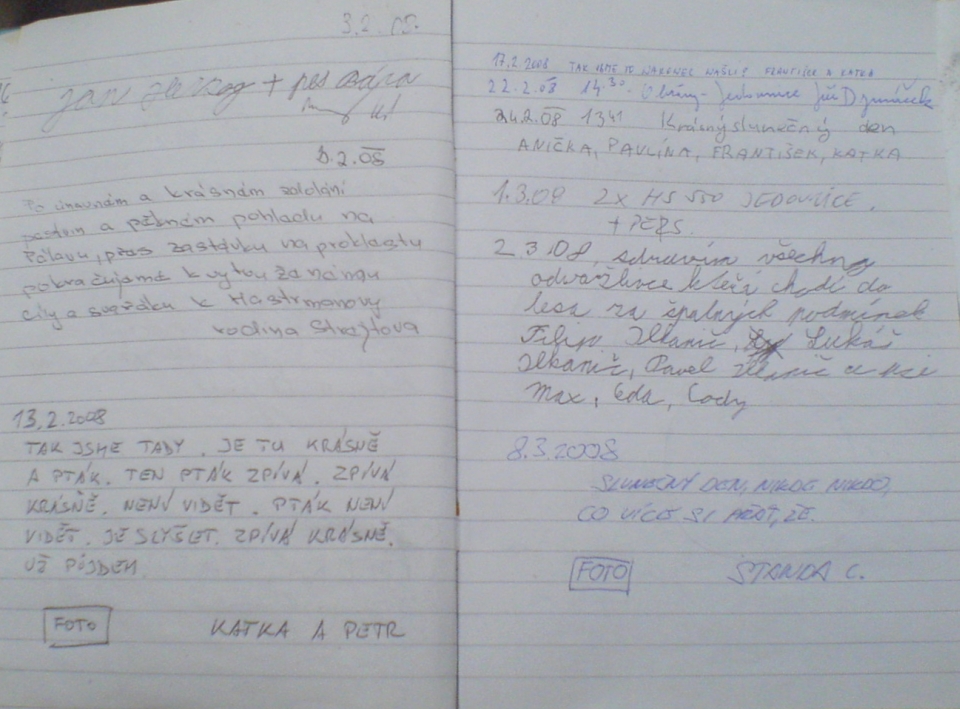 3.2.08.
Jan + pes Bára
8.2.08
Po únavném a krásném zdolání
a pěkném pohledu na
Pálavu, přes zastávku na proklestu
pokračujeme k vytouženému
cíly a svařáku k Hastrmanovy
rodina Strejtova
13.2.2008
TAK JSME TADY. JE TU KRÁSNĚ
A PTÁK. TEN PTÁK ZPÍVÁ. ZPÍVÁ
KRÁSNĚ. NENÍ VIDĚT. PTÁK NENÍ
VIDĚT. JE SLYŠET. ZPÍVÁ KRÁSNĚ.
UŽ PŮJDEM
FOTO KATKA A PETR
17.2.2008 TAK JSME TO NAKONEC NAŠLI? FRANTIŠEK A KATKA
22.2.08 14.30 Obřany - Jedovnice Jiří
24.2.08 1341 Krásný slunečný den
ANIČKA, PAVLÍNA, FRANTIŠEK, KATKA
1.3.08 2X HS 550 JEDOVNICE.
+ PERS.
2.3.08, zdravím všechny
odvážlivce kteří chodí do
lesa za špatných podmínek
Filip Ilkanič, Lukáš
Ilkanič, Pavel Ilkanič a psi
Max, Eda, Cody
8.3.2008
SLUNEČNÝ DEN, NIKDE NIKDO,
CO VÍCE SI PŘÁT, ŽE.
FOTO STANDA C.